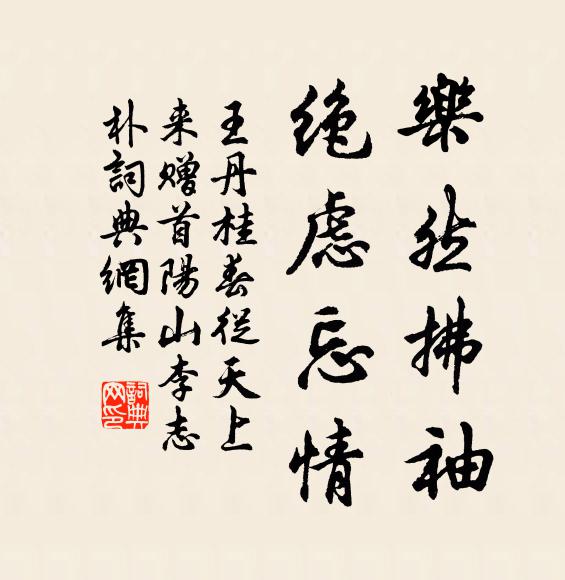 樂然拂袖
絶慮忘情
王丹桂春從天上
来贈首陽山李志
朴詞典網集
詞典
网印